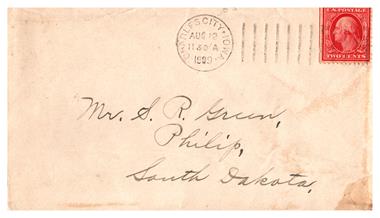 CHARLES CITY, IOWA
AUG 12
11 30 A
U.S. POSTAGE
TWO CENTS
Mr. S. R. Green,
Philip,
South Dakota.